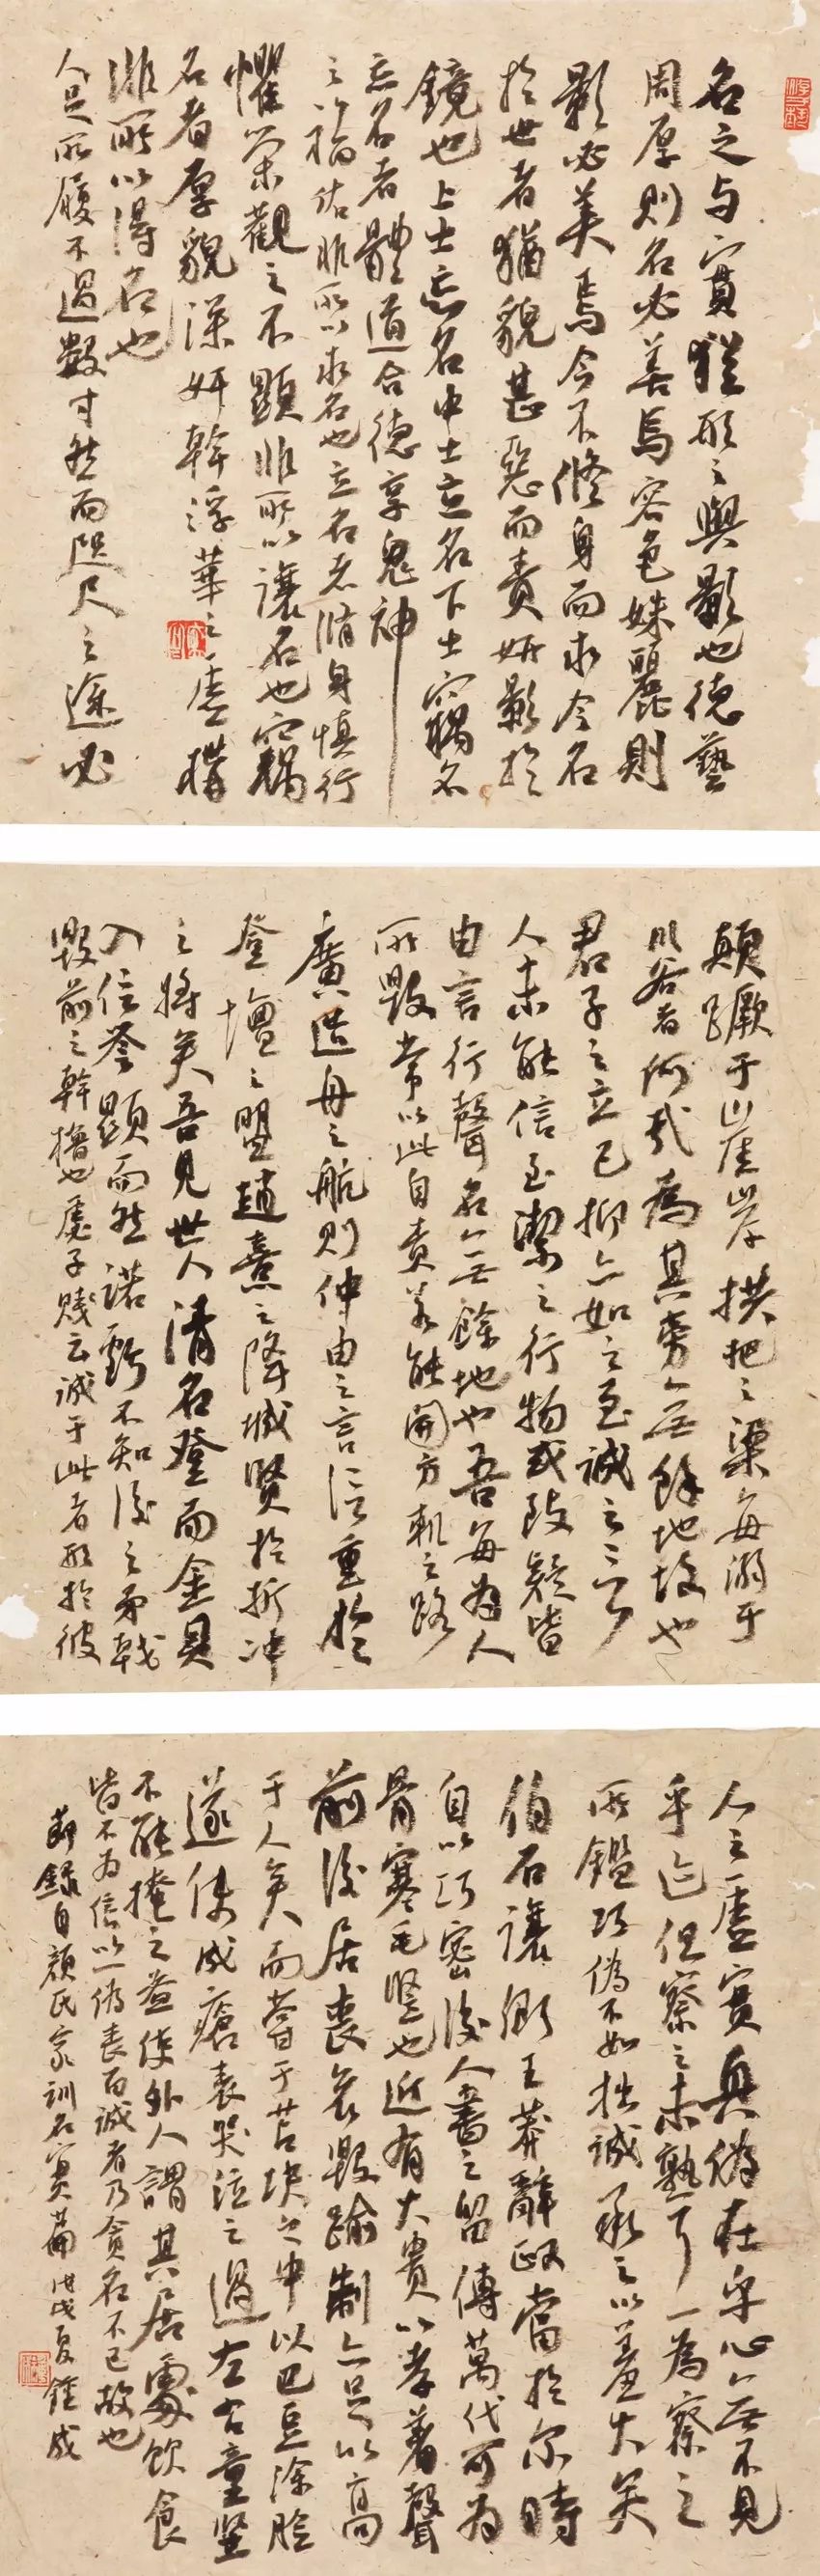 名之与實猶形之與影也德藝
周厚則名必善焉容色姝麗則
影必美焉今不脩身而求令名
於世者猶貌甚惡而責妍影於
鏡也上士忘名中士立名下士竊名
忘名者體道合德享鬼神
之福佑非所以求名也立名者脩身慎行
懼榮觀之不顯非所以讓名也竊
名者厚貌深奸幹浮華之虛構
非所以得名也
人足所履不過數寸然而咫尺之途必
顛蹶于崖岸拱把之梁每溺于
川谷者何哉為其旁無餘地故也
君子之立己抑亦如之至誠之言
人未能信至潔之行物或致疑皆
由言行聲名無餘地也吾每為人
所毀常以此自責若能開方軌之路
廣造舟之航則仲由之言信重於
登壇之盟趙熹之降城賢於折冲
之將矣吾見世人清名登而金貝
入信譽顯而然諾虧不知後之矛戟
毀前之幹櫓也虙子賤云誠于此者形於彼
人之虛實真偽在乎心無不見
乎迹但察之未熟耳一為察之
所鑑巧偽不如拙誠承之以羞大矣
伯石讓卿王莽辭政當於尔時
自以巧密後人書之留傳萬代可為
骨寒毛竪也近有大貴以孝著聲
前後居喪哀毀踰制亦足以高
于人矣而嘗于苫块之中以巴豆涂臉
遂使成瘡表哭泣之過左右童竪
不能掩之益使外人謂其居處飲食
皆不為信以一偽喪百誠者乃貪名不已故也
節録自顔氏家訓名實篇 戊戌夏鍾成